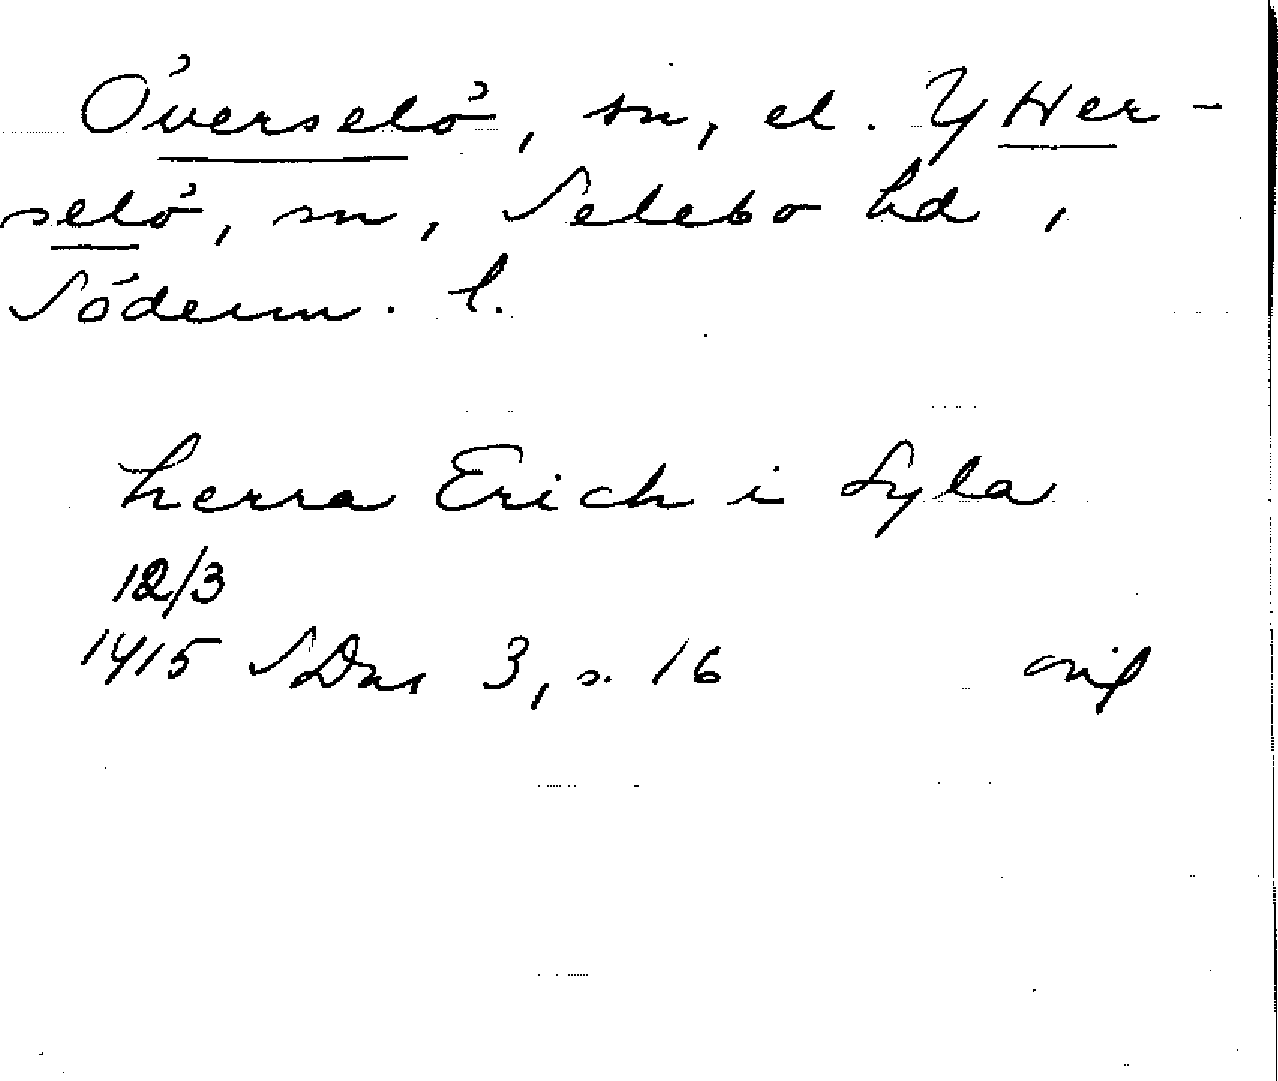 Överselö, sn, el. Ytter-
selö, sn, Selebo hd,
Söderm. l.
herra Erich i Syla
12/3
1415 SDns 3, s. 16